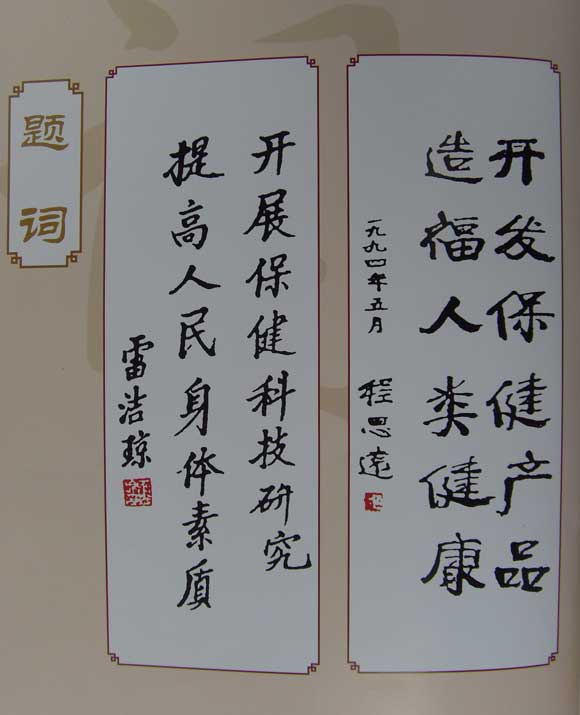 题词
开发保健产品
造福人类健康
一九九四年五月
程思远
开展保健科技研究
提高人民身体素质
雷洁琼